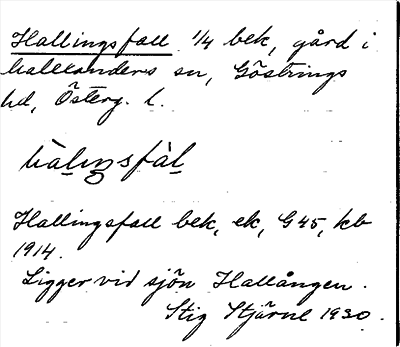 Hallingsfall 1/4 bek, gård i
Vallerstads sn, Göstrings
hd, Österg. l.
hàlıŋsfàl
Hallingsfall bek, ek, G 45, kb
1914.
Ligger vid sjön Hallången.
Stig Stjärne 1930.